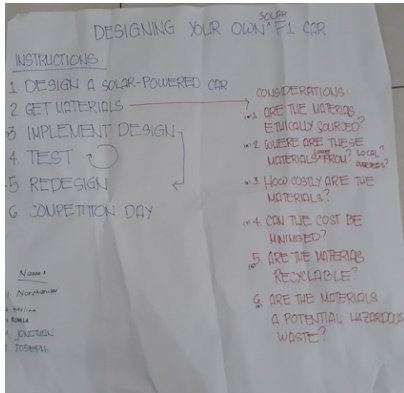 DESIGNING YOUR OWN SOLAR F1 CAR
INSTRUCTIONS
1 DESIGN A SOLAR-POWERED CAR
2 GET MATERIALS
3 IMPLEMENT DESIGN
4 TEST
5 REDESIGN
6 COMPETITION DAY
CONSIDERATIONS:
1. ARE THE MATERIAS
ETHICALLY SOURCED?
2. WHERE ARE THESE
MATERIALS FROM? LOCAL?
OVERSEAS?
3. HOW COSTLY ARE THE
MATERIALS?
4. CAN THE COST BE
MINIMISED?
5. ARE THE MATERIAS
RECYCLABLE?
6. ARE THE MATERIALS
A POTENTIAL HAZARDOUS
WASTE?